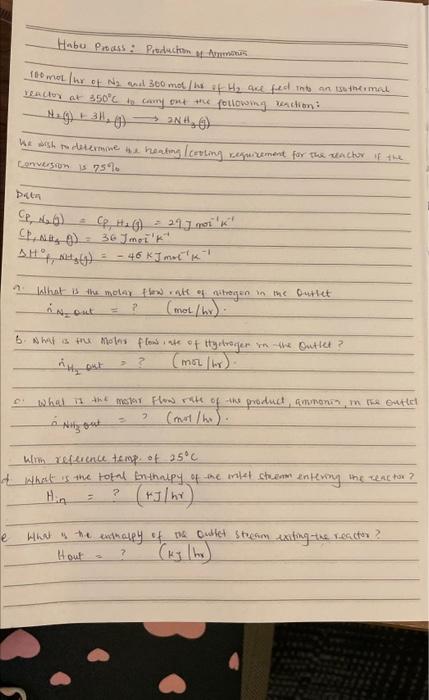 Haber Process: Production of Ammonia
100 mol/hr of N₂ and 300 mol/hr of H₂ are fed into an isothermal
reactor at 350°C to carry out the following reaction:
N₂(g) + 3H₂(g) ⟶ 2NH₃(g)
We wish to determine the heating/cooling requirement for the reactor if the
conversion is 75%
Data
Cp, N₂(g) = Cp, H₂(g) = 29 J mol⁻¹ K⁻¹
Cp, NH₃(g) = 36 J mol⁻¹ K⁻¹
ΔH°f, NH₃(g) = -46 KJ mol⁻¹ K⁻¹
a. What is the molar flow rate of nitrogen in the Outlet
ṅ N₂ out = ? (mol/hr).
b. What is the Molar flow rate of Hydrogen in the Outlet?
ṅ H₂ out = ? (mol/hr).
c. What is the molar flow rate of the product, ammonia, in the outlet
ṅ NH₃ out = ? (mol/hr).
With reference temp. of 25°C
d. What is the total Enthalpy of the inlet stream entering the reactor?
Hin = ? (KJ/hr)
e. What is the enthalpy of the Outlet stream exiting the reactor?
Hout = ? (KJ/hr)